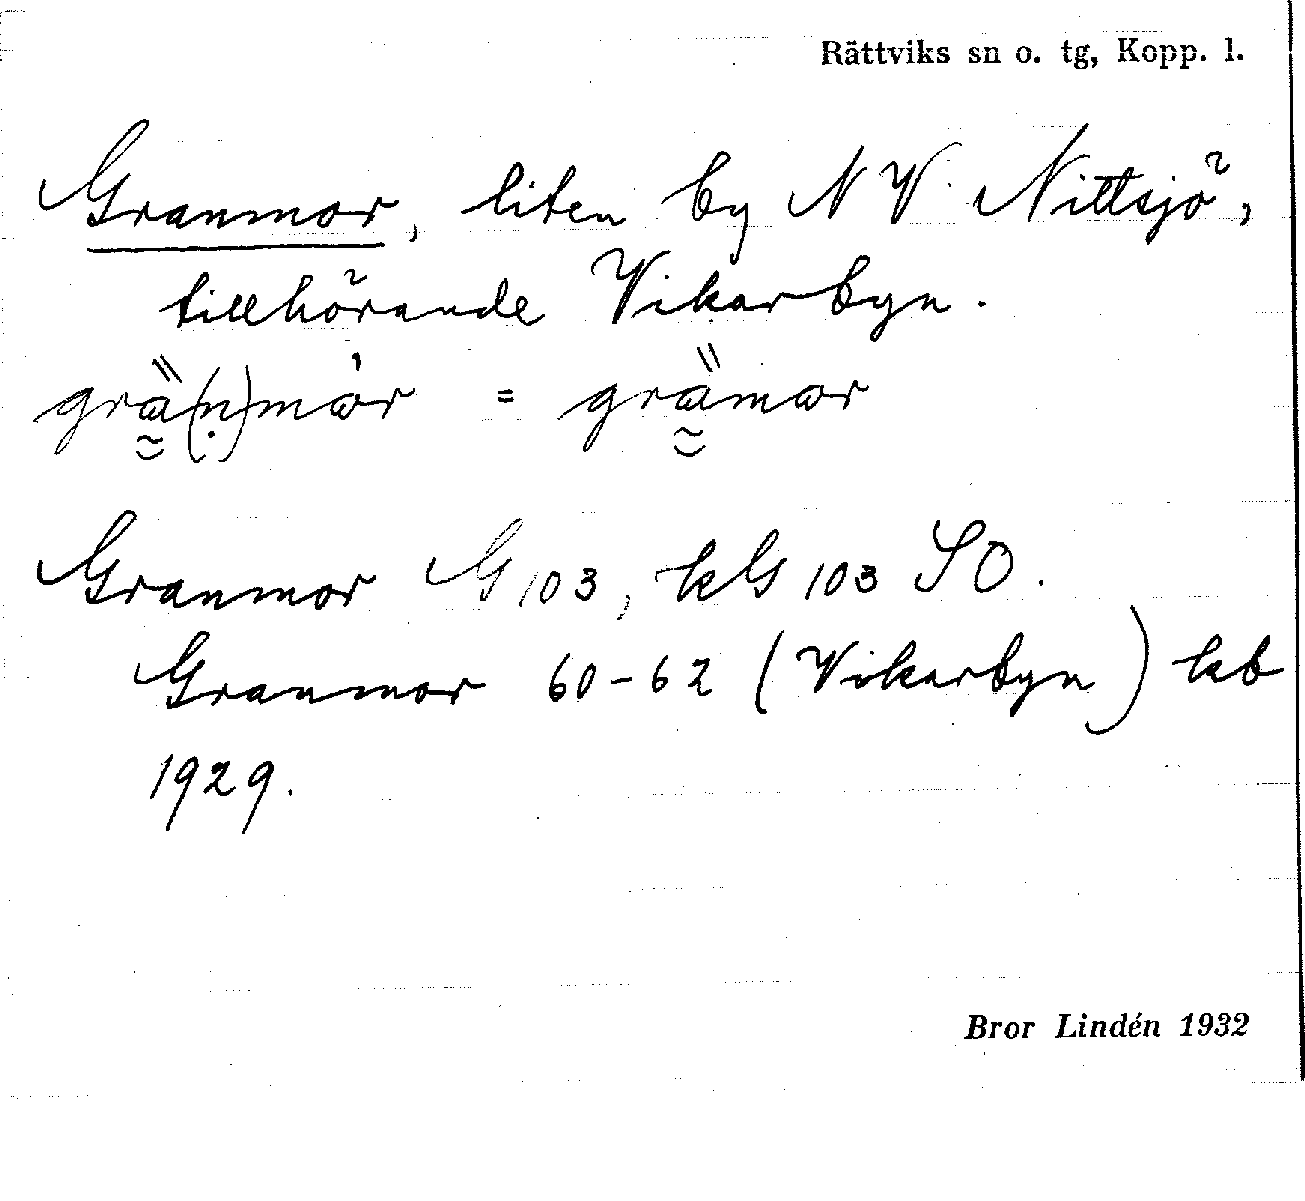 Rättviks sn o. tg, Kopp. l.
Granmor, liten by N V Nittsjö,
tillhörande Vikarbyn.
grä(n)mòr = grämar
Granmor G 103, kG 103 SO.
Granmor 60-62 (Vikarbyn) kb
1929.
Bror Lindén 1932